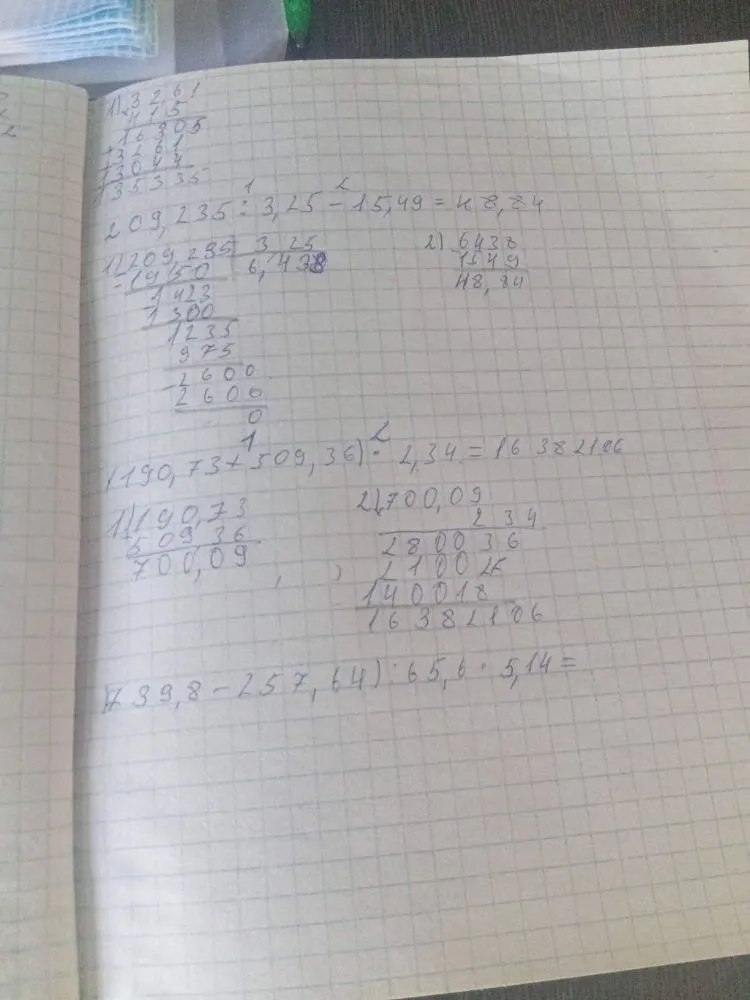 1) 3261
× 415
16305
+ 3261
13044
135335
1 2
209,235 : 3,25 - 15,49 = 48,84
1) 209,235 | 3 25
- 1950 6,438
1423
1300
1235
975
- 2600
2600
0
2) 6438
1549
48,84
1 2
(190,73 + 509,36) · 2,34 = 16382106
1) 190,73
+ 509 36
700,09
2) 700,09
2 34
280036
21002
140018
16382106
(799,8 - 257,64) : 65,6 · 5,14 =